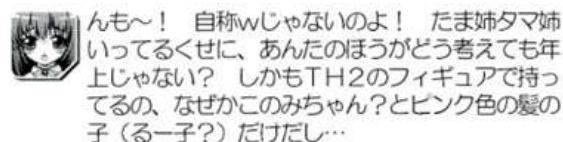 んも～！　自称wじゃないのよ！　たま姉タマ姉
いってるくせに、あんたのほうがどう考えても年
上じゃない？　しかもTH2のフィギュアで持っ
てるの、なぜかこのみちゃん？とピンク色の髪の
子（るー子？）だけだし…